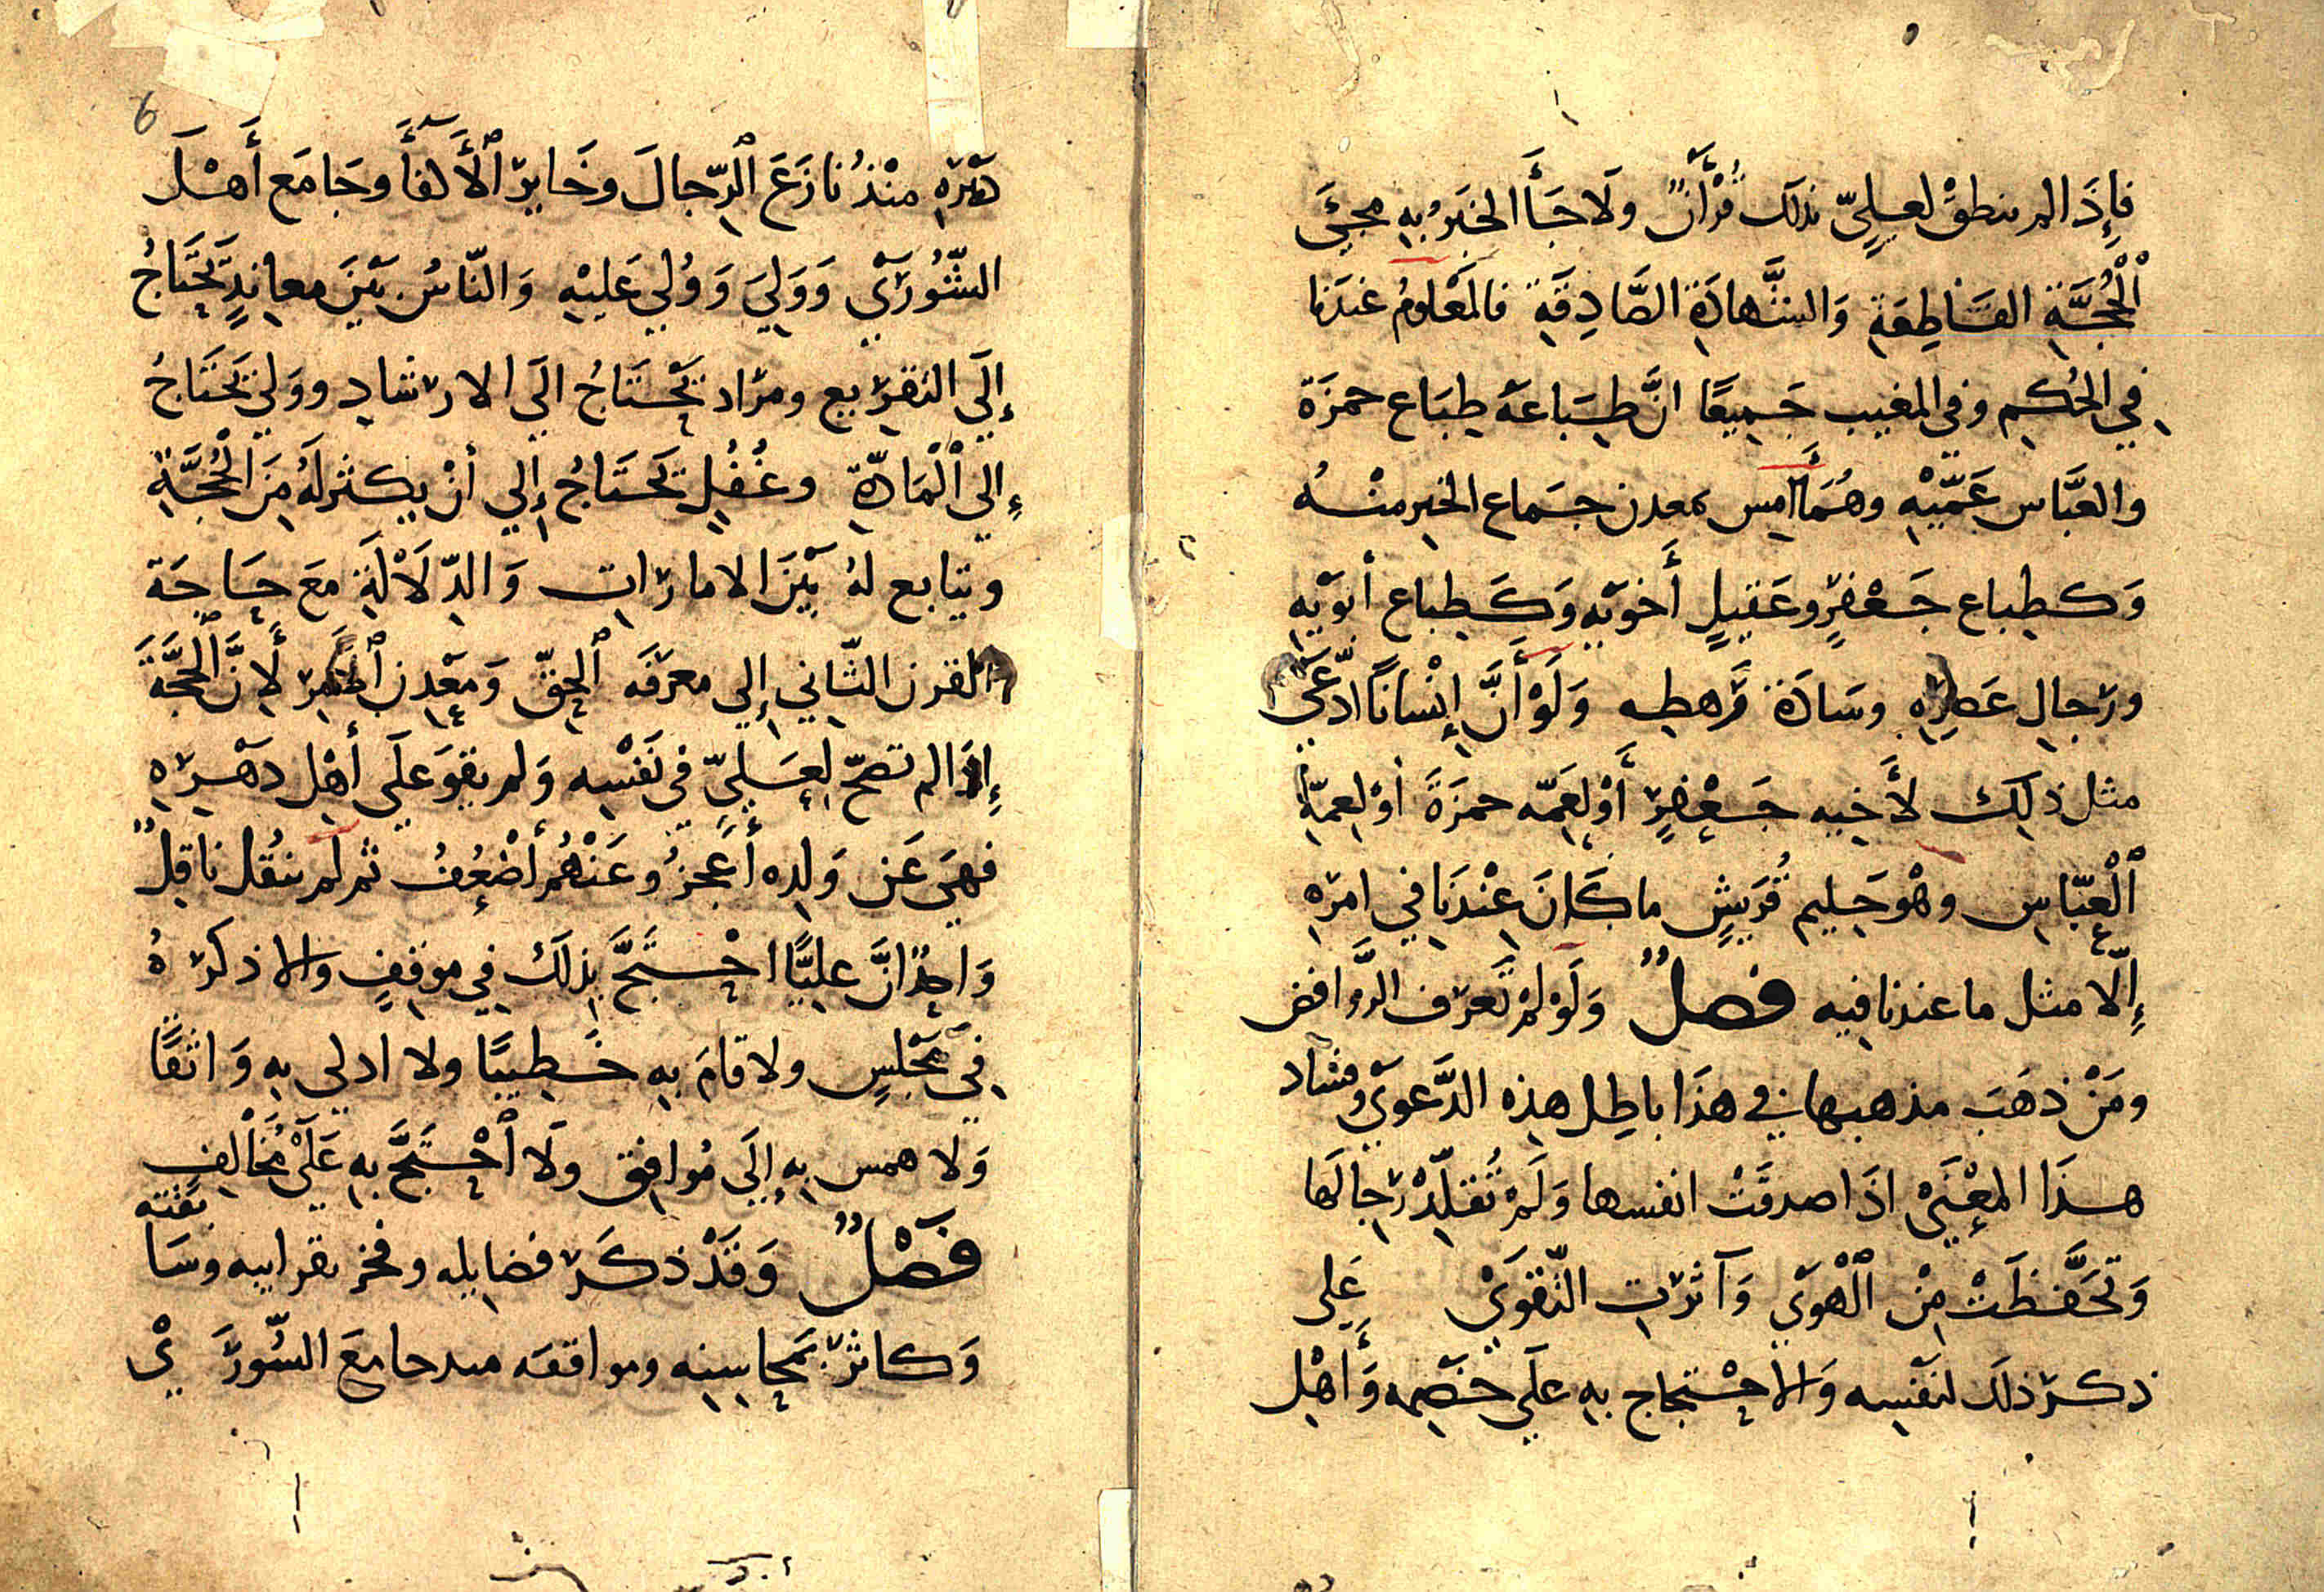 فإِذَا لم ينطقْ لعليٍّ بذلك قُرْأَنٌ ولَا جَأَ الخبَرُ بِهِ مجيَئ
ٱلْحُجَّةِ القَاطِعَةِ وَالشَّهادَةِ الصَّادِقَةِ فالمَعْلومُ عندَنا
في الحُكمِ وفي المغيب جَمِيعًا انَّ طِبَاعَهُ طِبَاع حمزَة
والعبَّاس عَمَّيْهِ وهُمَا أَمس بمعدن جَماع الخير منْهُ
وَكطباع جَعْفرٍ وعَقيلٍ أَخويْهِ وَكَطباع أبوَيْهِ
ورجالِ عَصرِهِ وسَادَة رَهطِه وَلَوْ أَنَّ إِنْسانًا ادَّعَى
مثل ذلِكَ لأَخيه جَعْفرٍ أَوْ لعَمّه حمزَةَ أوْ لعمّهِ
ٱلْعبّاسِ وهْو حَليم قُريشٍ ما كَانَ عِنْدنَا في امرَهِ
إِلّا مثل ما عندنا فيه فصلٌ وَلَوْ لمْ تَعرَف الرَّوافض
ومَنْ ذهَبَ مذهبها في هذَا باطِل هذِه الدَّعوَى وفساد
هذَا المعْنَى اذَا صدقَتْ انفسها وَلَمْ تُقلِّدْ رَجالَها
وَتَحَفَّظَتْ مِنْ ٱلْهوَي وَآثرَت التّقوَيْ عَلى
ذكرَ ذلَك لنَفْسِه وَالاحْتجاج بِهِ علَى خَصْمِه وَأَهْل
6
دَهْرِهِ منْذُ نازَعَ ٱلرّجالَ وخَايرَ ٱلأَكفأَ وجَامَع أَهْلَ
الشُّورَيْ وَوَلِيَ وَوُلي عَليْهِ وَالنّاسُ بَيْنَ معانِدٍ تحَتَاجُ
إِلَى التقرَيع ومرَاد تَحْتَاجُ الَى الارشادِ ووَليٍ تَحتَاجُ
إِلي ٱلْمَادّةِ وغُفُلٍ تَحتَاجُ إِلي أنْ يكثر لَهُ مِنَ الْحُجَّةِ
ويتابع لهُ بَيْنَ الاماراتِ وَالدّلَالَةِ مَعَ حَاجَة
القرن الثّاني إِلي معرَفَه ٱلحقّ وَمَعْدِن ٱلأمر لأَنَّ ٱلحجَّةَ
إِذا لم تصحّ لِعَليٍّ في نَفْسِه وَلم يقوَ علَى أهْل دَهْرَهِ
فهيَ عَن وَلِده أَعجزُ وعَنْهُم أضْعُفُ ثم لم ينْقُل ناقِلٌ
وَاحدٌ انَّ عليًّا احْتجَّ بذلَك في موقفٍ وَالا ذكرَهُ
في مَجْلسٍ ولا قامَ بِهِ خَطِيبًا ولا ادلى بِهِ وَاثقًا
وَلا همس بِهِ إِلَى مُوافِق ولَا ٱحْتَجَّ بِهِ عَلَىْ مُخَالِفٍ
فَصْلٌ وَقَدْ ذكَرَ فضايله وفخر بقرابيه وسَابقته
وَكاثرَ بمَحاسِنِه ومواقفه مىد جامعَ الشّورَيْ